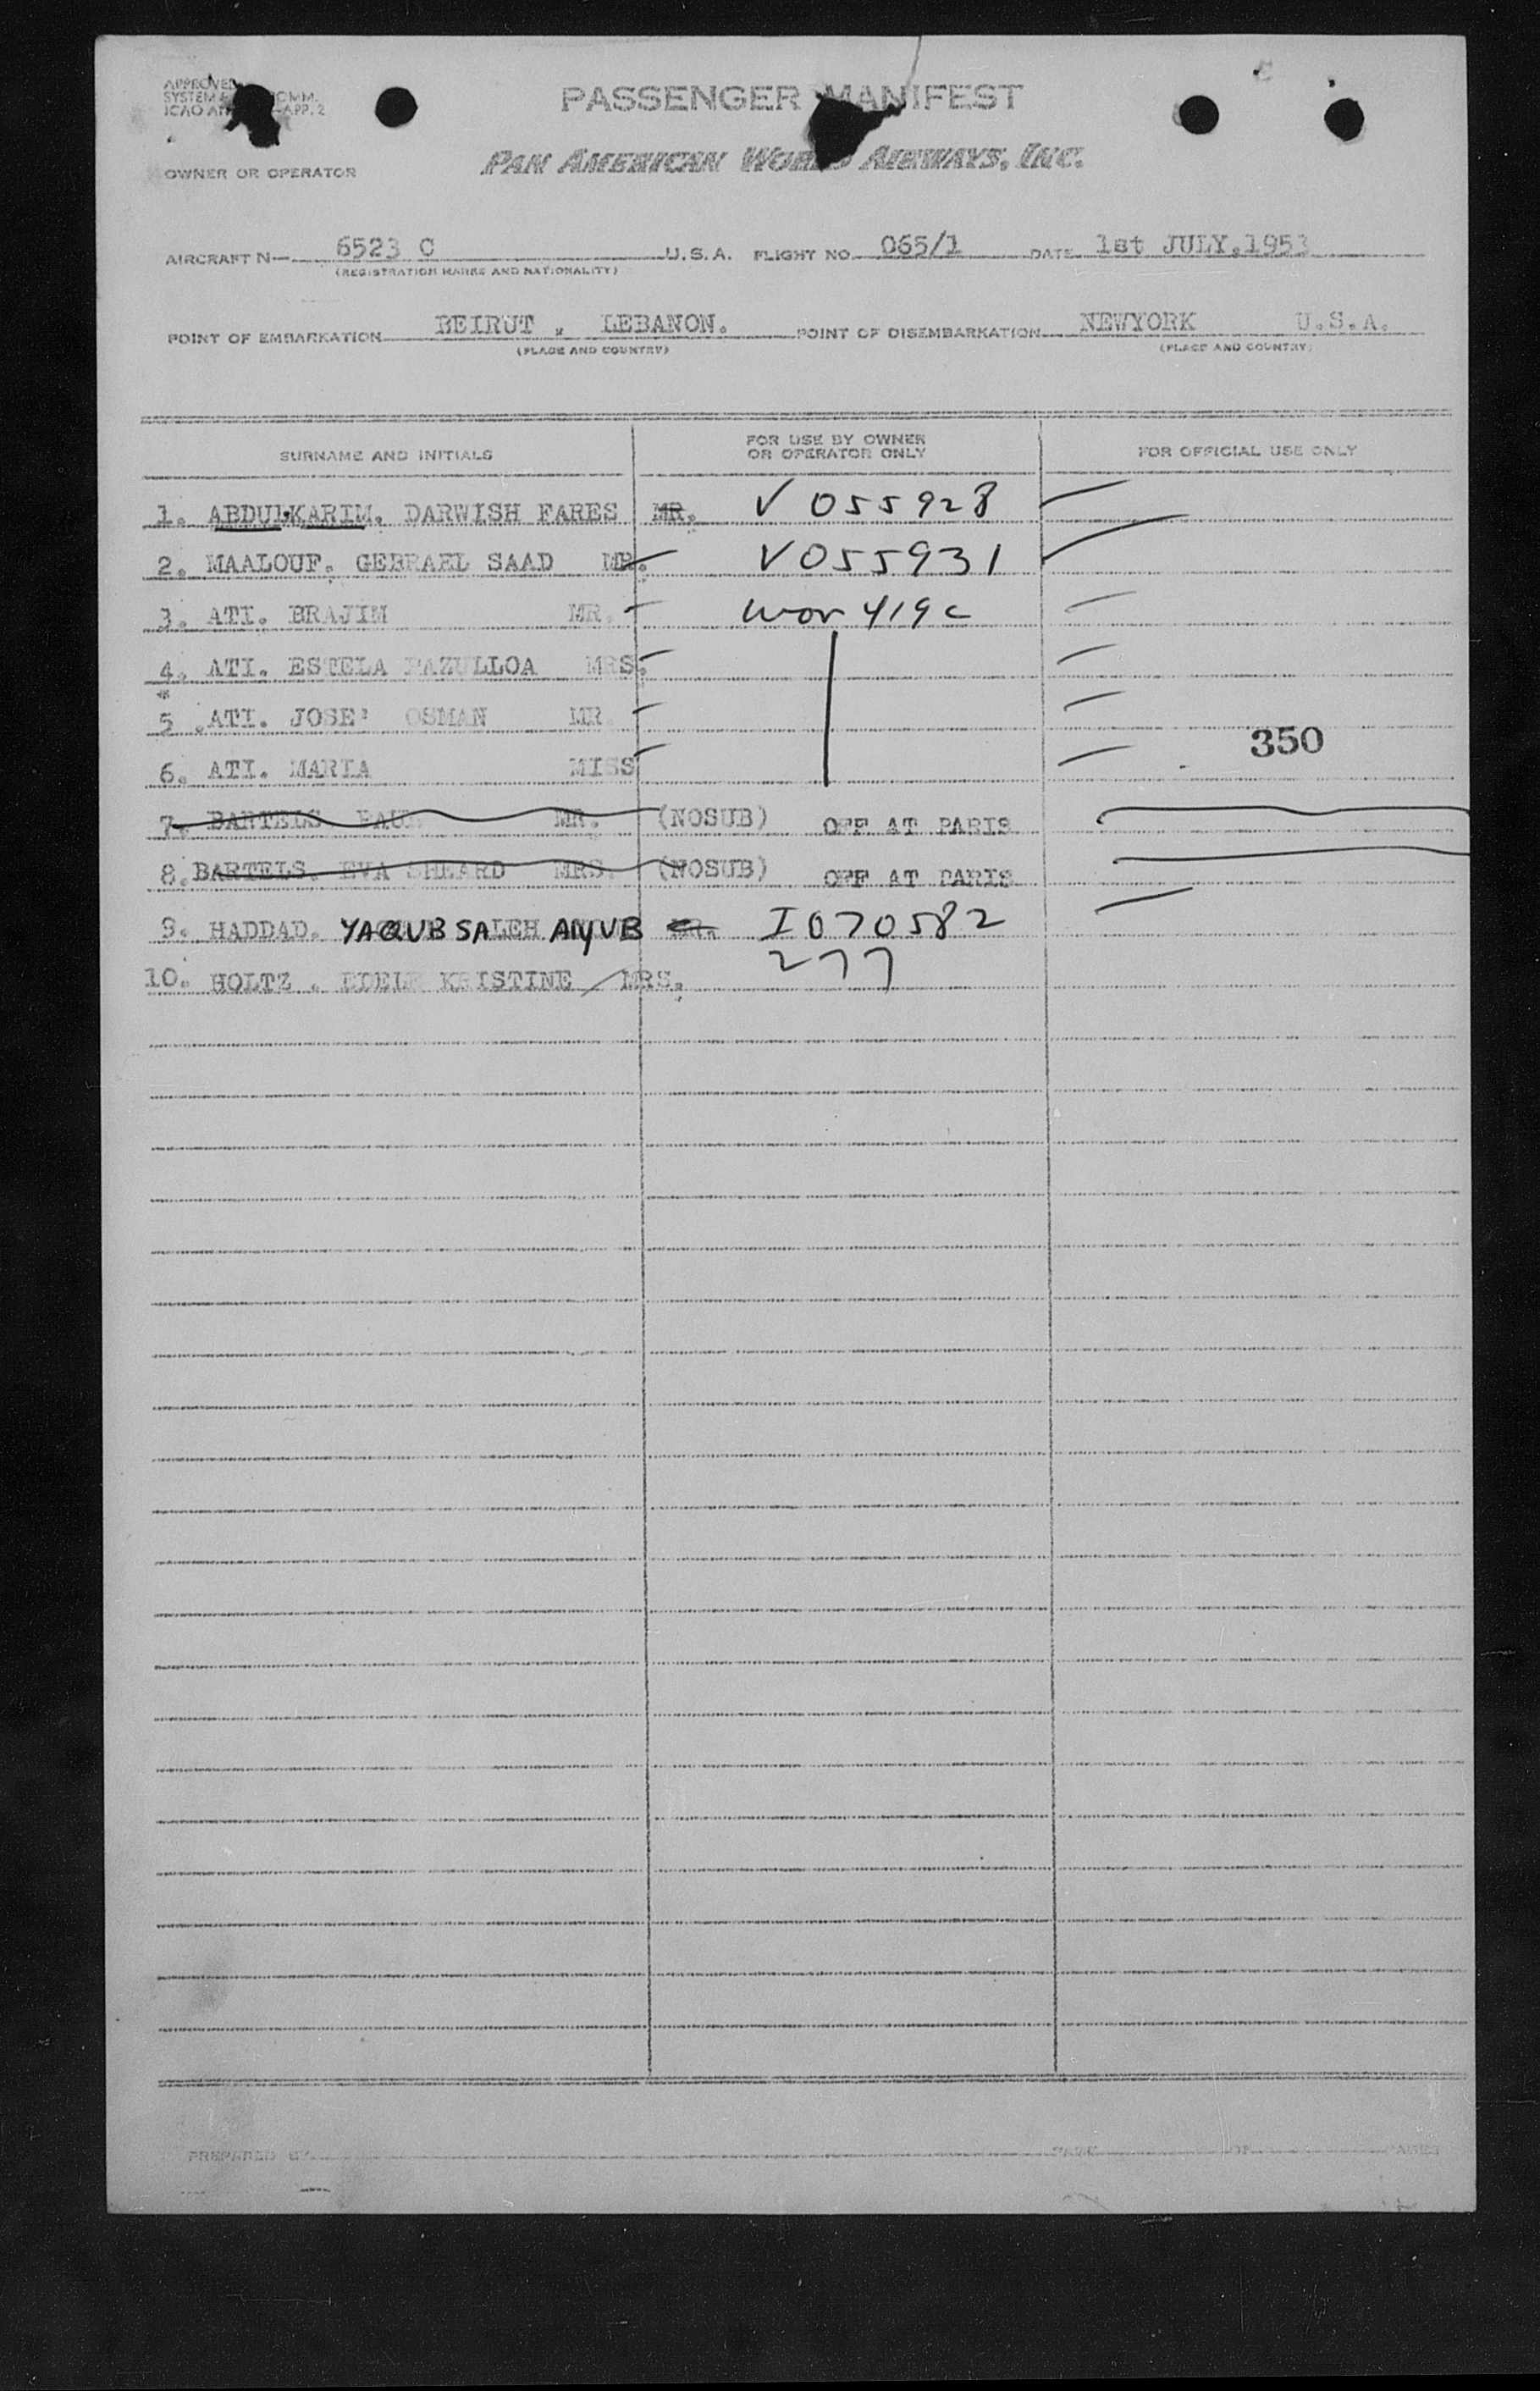 APPROVED
SYSTEM COMM.
ICAO APP. 2
PASSENGER MANIFEST
PAN AMERICAN WORLD AIRWAYS, INC.
OWNER OR OPERATOR
AIRCRAFT N— 6523 C U.S.A. FLIGHT NO. 065/1 DATE 1st JULY.1953
(REGISTRATION MARKS AND NATIONALITY)
POINT OF EMBARKATION BEIRUT , LEBANON. POINT OF DISEMBARKATION NEWYORK U.S.A.
(PLACE AND COUNTRY) (PLACE AND COUNTRY)
SURNAME AND INITIALS FOR USE BY OWNER OR OPERATOR ONLY FOR OFFICIAL USE ONLY
1. ABDULKARIM. DARWISH FARES MR. V 055928
2. MAALOUF. GEBRAEL SAAD MR. V 055931
3. ATI. BRAJIM MR. 419c
4. ATI. ESTELA MRS.
5. ATI. JOSE OSMAN MR.
350
6. ATI. MARIA MISS
7. BARTELS. PAUL MR. (NOSUB) OFF AT PARIS
8. BARTELS. EVA SHEARD MRS. (NOSUB) OFF AT PARIS
9. HADDAD. YAQUB SALEH AYUB MR. I 070582
277
10. HOLTZ . KRISTINE MRS.
PREPARED BY PAGE OF PAGES